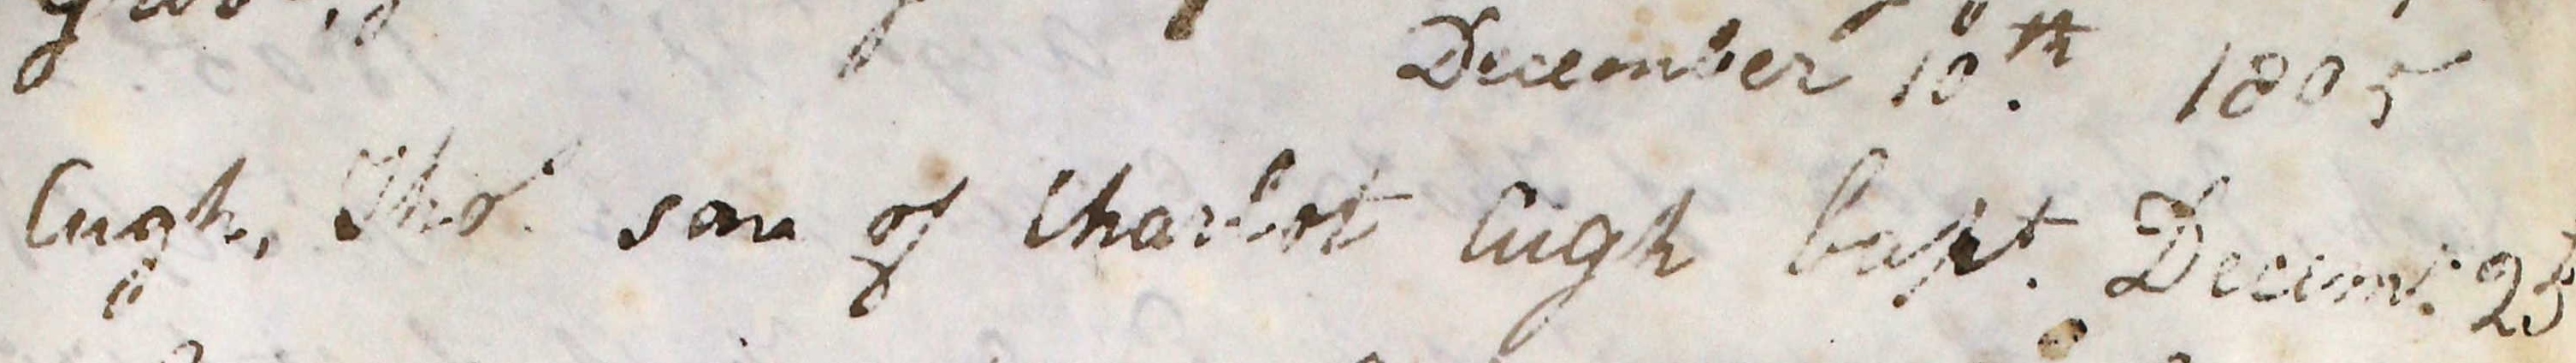 December 10th. 1805
Cugh, Tho.s son of Charlot Cugh bapt. Decemr. 25